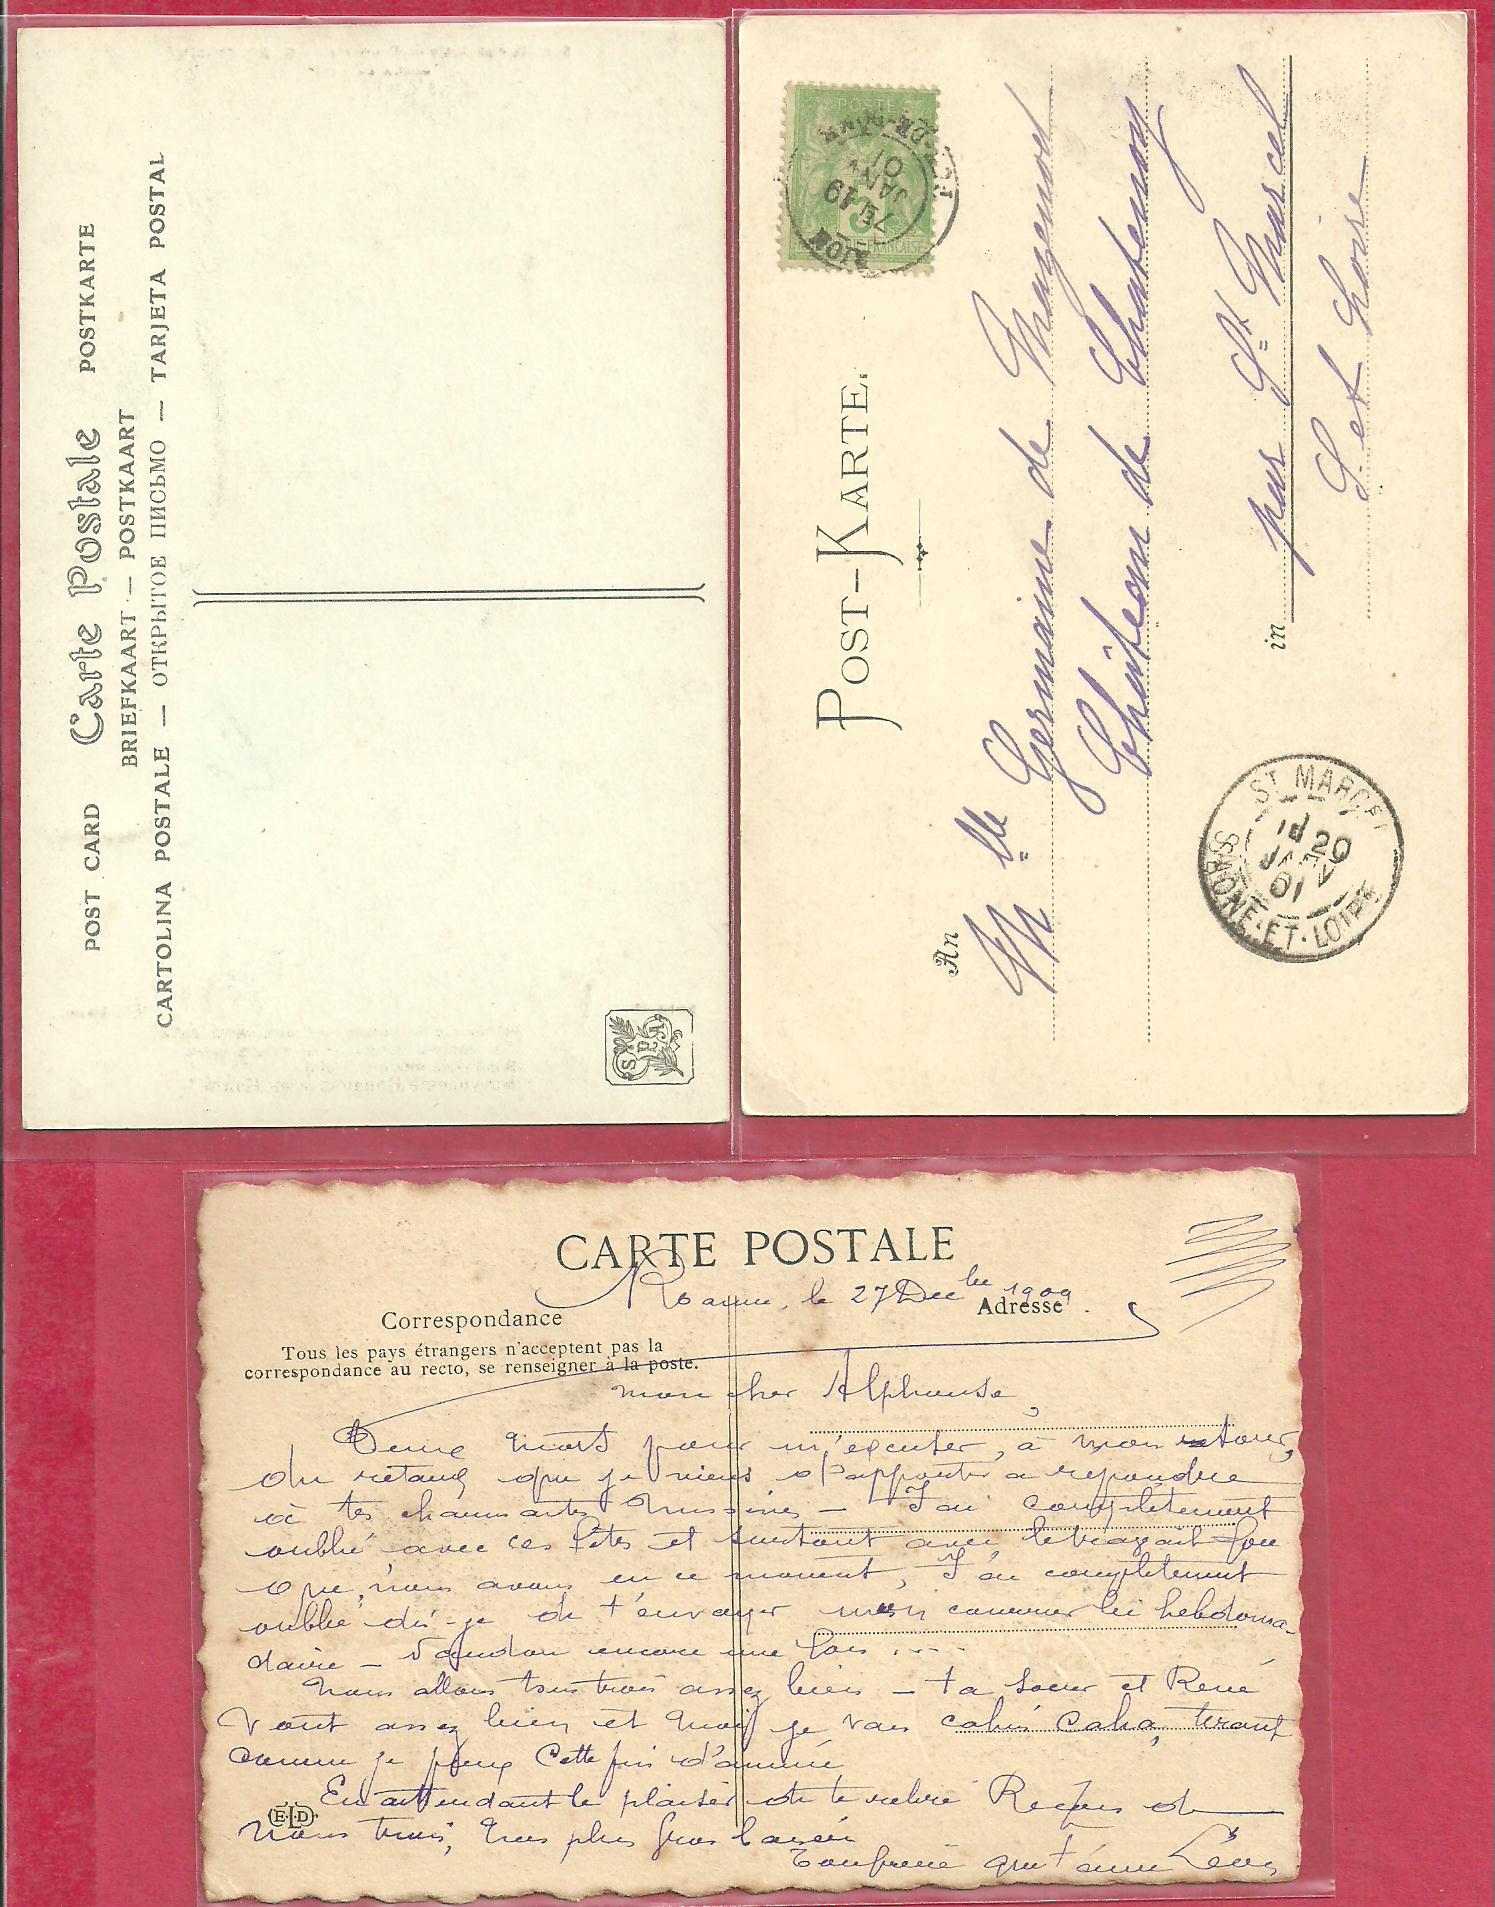 POST CARD Carte Postale POSTKARTE
BRIEFKAART — POSTKAART
CARTOLINA POSTALE — ОТКРЫТОЕ ПИСЬМО — TARJETA POSTAL
S P A
POSTES
RIOM PUY-DE-DOME
7E 19
JANV
01
POST-KARTE.
An
Mlle Germaine de Mazenod
Château de Chatenoy
in par St Marcel
S. et Loire
ST MARCEL
20
JANV
01
SAONE-ET-LOIRE
CARTE POSTALE
Roanne, le 27 Décbre 1909.
Correspondance
Adresse
Tous les pays étrangers n'acceptent pas la
correspondance au recto, se renseigner à la poste.
mon cher Alphonse,
Deux mots pour m'excuser, à mon tour,
du retard que je viens d'apporter à répondre
à tes charmantes missives — J'ai complètement
oublié avec ces fêtes et surtout avec le travail fou
que nous avons en ce moment, J'ai complètement
oublié dis-je de t'envoyer mon courrier hebdoma-
daire — Pardon encore une fois ....
Nous allons tous trois assez bien — ta soeur et René
vont assez bien et moi je vais cahin caha, tirant
comme je peux cette fin d'année
En attendant le plaisir de te relire Reçois de
nous trois, nos plus gros baisers
Ton frère qui t'aime Léon
E.L.D